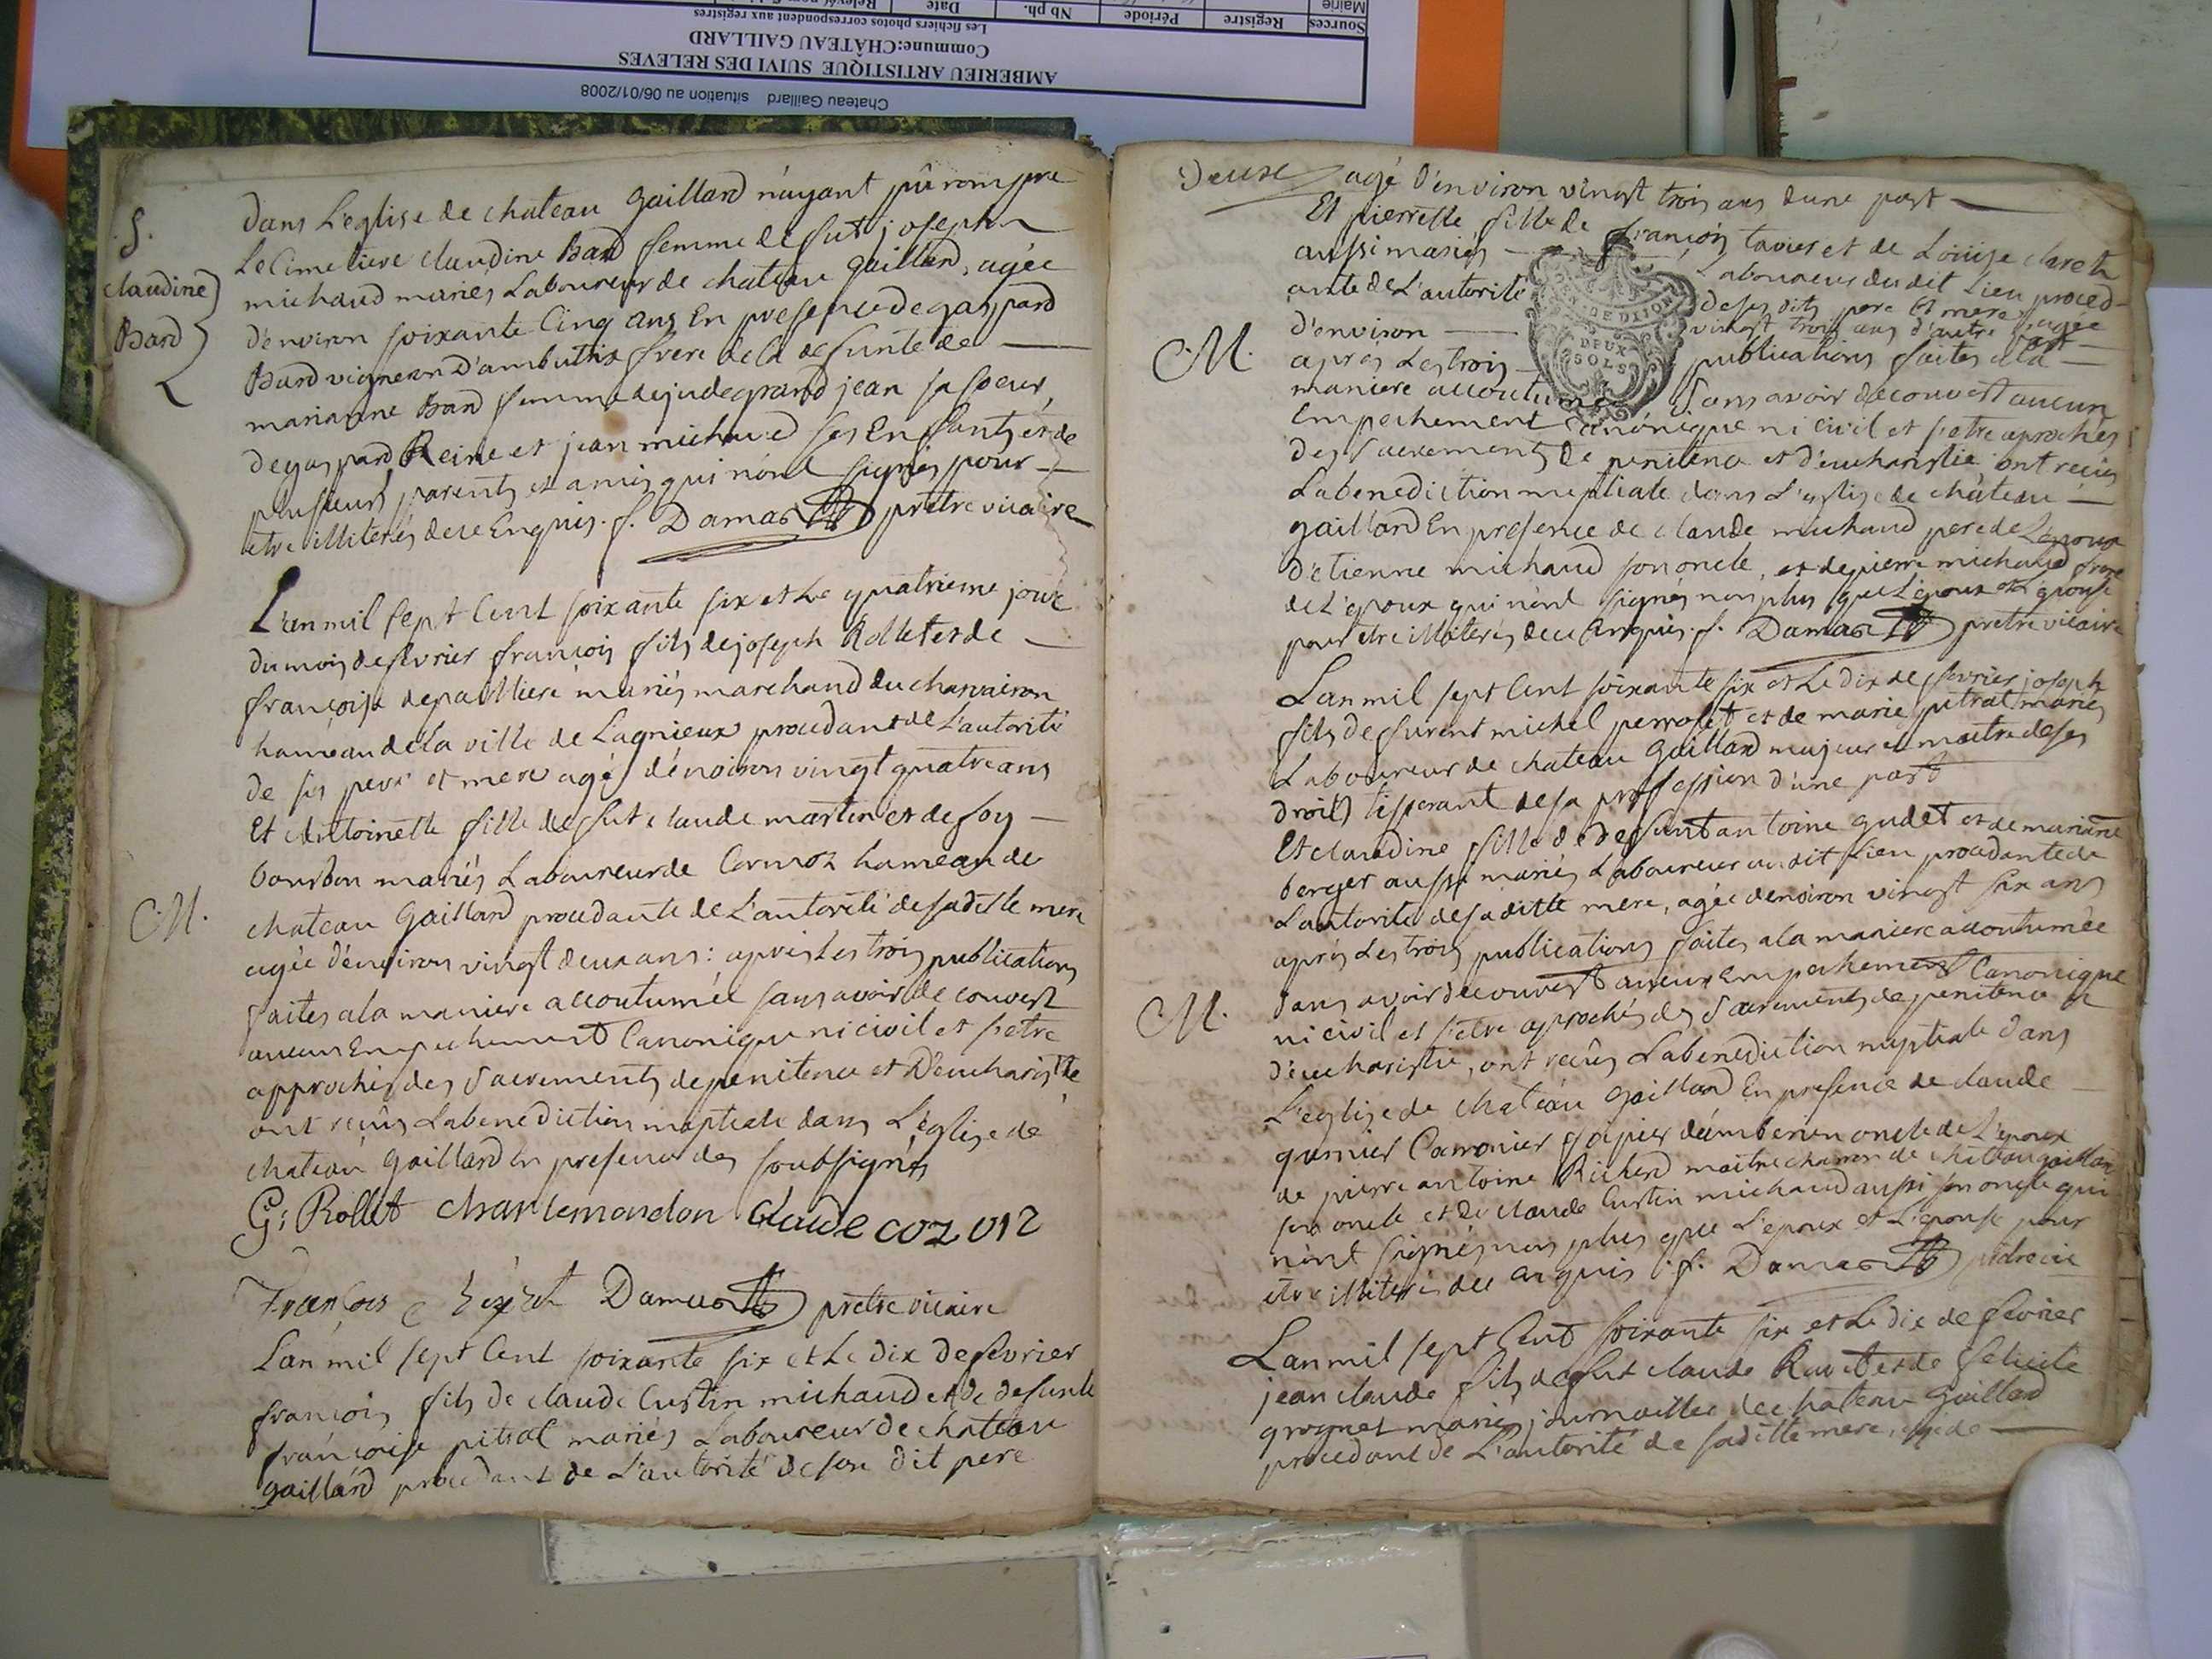 Chateau Gaillard situation au 06/01/2008
AMBERIEU ARTISTIQUE SUIVI DES RELEVES
Commune:CHÂTEAU GAILLARD
Les fichiers photos correspondent aux registres
Sources Registre Période Nb ph. Date
Mairie
S.
claudine
Bard
dans L'eglise de chateau gaillard n'ayant pû rompre
Le Cimetiere claudine Bard femme de fut joseph
michaud mariés Laboureur de chateau gaillard, agée
d'environ soixante Cinq ans En presence de gaspard
Bard vigneron d'ambutrix frere de la defunte de
marianne Bard femme de jude grand jean sa soeur,
de gaspard Reine et jean michaud ses Enfants et de
plusieurs parents et amis qui n'ont signés pour
etre illiterés de ce Enquis. f. Damas prêtre vicaire
L'an mil sept Cent soixante six et Le quatrieme jour
du mois de fevrier françois fils de joseph Rollet et de
françoise depalliere mariés marchand du charveiron
hameau de La ville de Lagnieux procedant de L'autorité
de ses pere et mere agé d'environ vingt quatre ans
Et Antoinette fille de fut claude martin et de foy
bourbon mariés Laboureur de Cormoz hameau de
C.M.
chateau Gaillard procedante de L'autorité de sa ditte mere
agée d'environ vingt deux ans : apres Les trois publications
faites a la maniere accoutumée sans avoir decouvert
aucun Empechement Canonique ni civil et s'etre
approchés des Sacrements de penitence et D'eucharistie
ont reçûs La benediction nuptiale dans L'église de
chateau gaillard En presence des soubsignés
G: Rollet charlemondon Claude cozon
François Damas prêtre vicaire
L'an mil sept Cent soixante six et Le dix de fevrier
françois fils de claude Curtin michaud et de defunte
françoise pitrat mariés Laboureur de chateau
gaillard procedant de L'autorité de son dit pere
Deuxe agé d'environ vingt trois ans dune part
Et pierrette fille de françois tavier et de Loüise claret
aussi mariés Laboureur du dit Lieu proced-
ante de L'autorité de ses dits pere et mere, agée
d'environ vingt trois ans d'autre part
GEN. DE DIJON
DEUX
SOLS
C.M.
apres Les trois publications faites a la
maniere accoutumée Sans avoir decouvert aucun
Empechement canonique ni civil et s'etre aprochés
des Sacrements de penitence et d'eucharistie ont reçus
La benediction nuptiale dans L'eglise de château
gaillard En presence de claude michaud pere de Lepoux
d'etienne michaud son oncle, et de pierre michaud frere
de L'epoux qui n'ont signés non plus que L'epoux et L'epouse
pour etre illiterés de ce Enquis. f. Damas pretre vicaire
L'an mil sept Cent soixante six et Le dix de fevrier joseph
fils de furent michel perrolet et de marie pitrat mariés
Laboureur de chateau Gaillard majeur et maitre de ses
droits tisserant de sa profession d'une part
Et claudine fille de defunt antoine gudet et de marianne
berger aussi mariés Laboureur au dit Lieu procedante de
L'autorité de sa ditte mere, agée d'environ vingt six ans
aprés Les trois publications faites a la maniere accoutumée
C.M.
Sans avoir decouvert aucun Empechement Canonique
ni civil et s'etre aprochés des Sacrements de penitence et
d'eucharistie, ont reçûs La benediction nuptiale dans
L'eglise de chateau gaillard En presence de claude
garnier d'amberieu oncle de L'epoux
de pierre antoine Richerd maitre charron de chateau gaillard
son oncle et de claude Curtin michaud aussi son oncle qui
n'ont signés non plus que L'epoux et L'epouse pour
etre illiterés de ce enquis. f. Damas
L'an mil sept Cent soixante six et Le dix de fevrier
jean claude fils de fut claude Ravet et de felicité
grognet mariés journallier de chateau gaillard
procedant de L'autorité de sa ditte mere, agé de